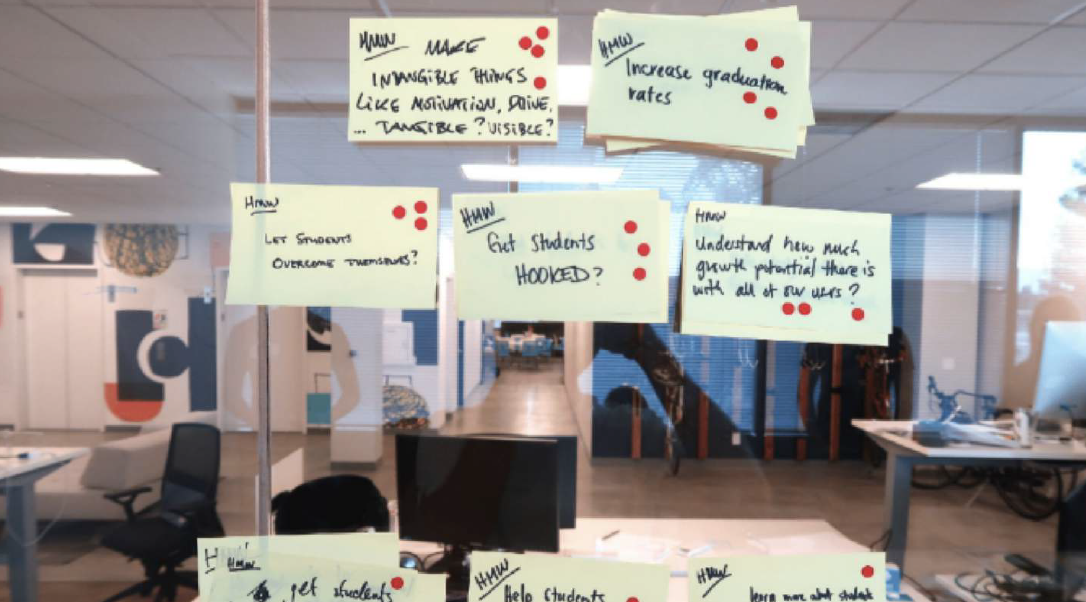 HMW MAKE
INTANGIBLE THINGS
LIKE MOTIVATION, DRIVE,
... TANGIBLE? VISIBLE?
HMW
Increase graduation
rates
HMW
LET STUDENTS
OVERCOME THEMSELVES?
HMW
Get Students
HOOKED?
HMW
Understand how much
growth potential there is
with all of our users?
HMW
get students
HMW
Help Students
HMW
learn more about students